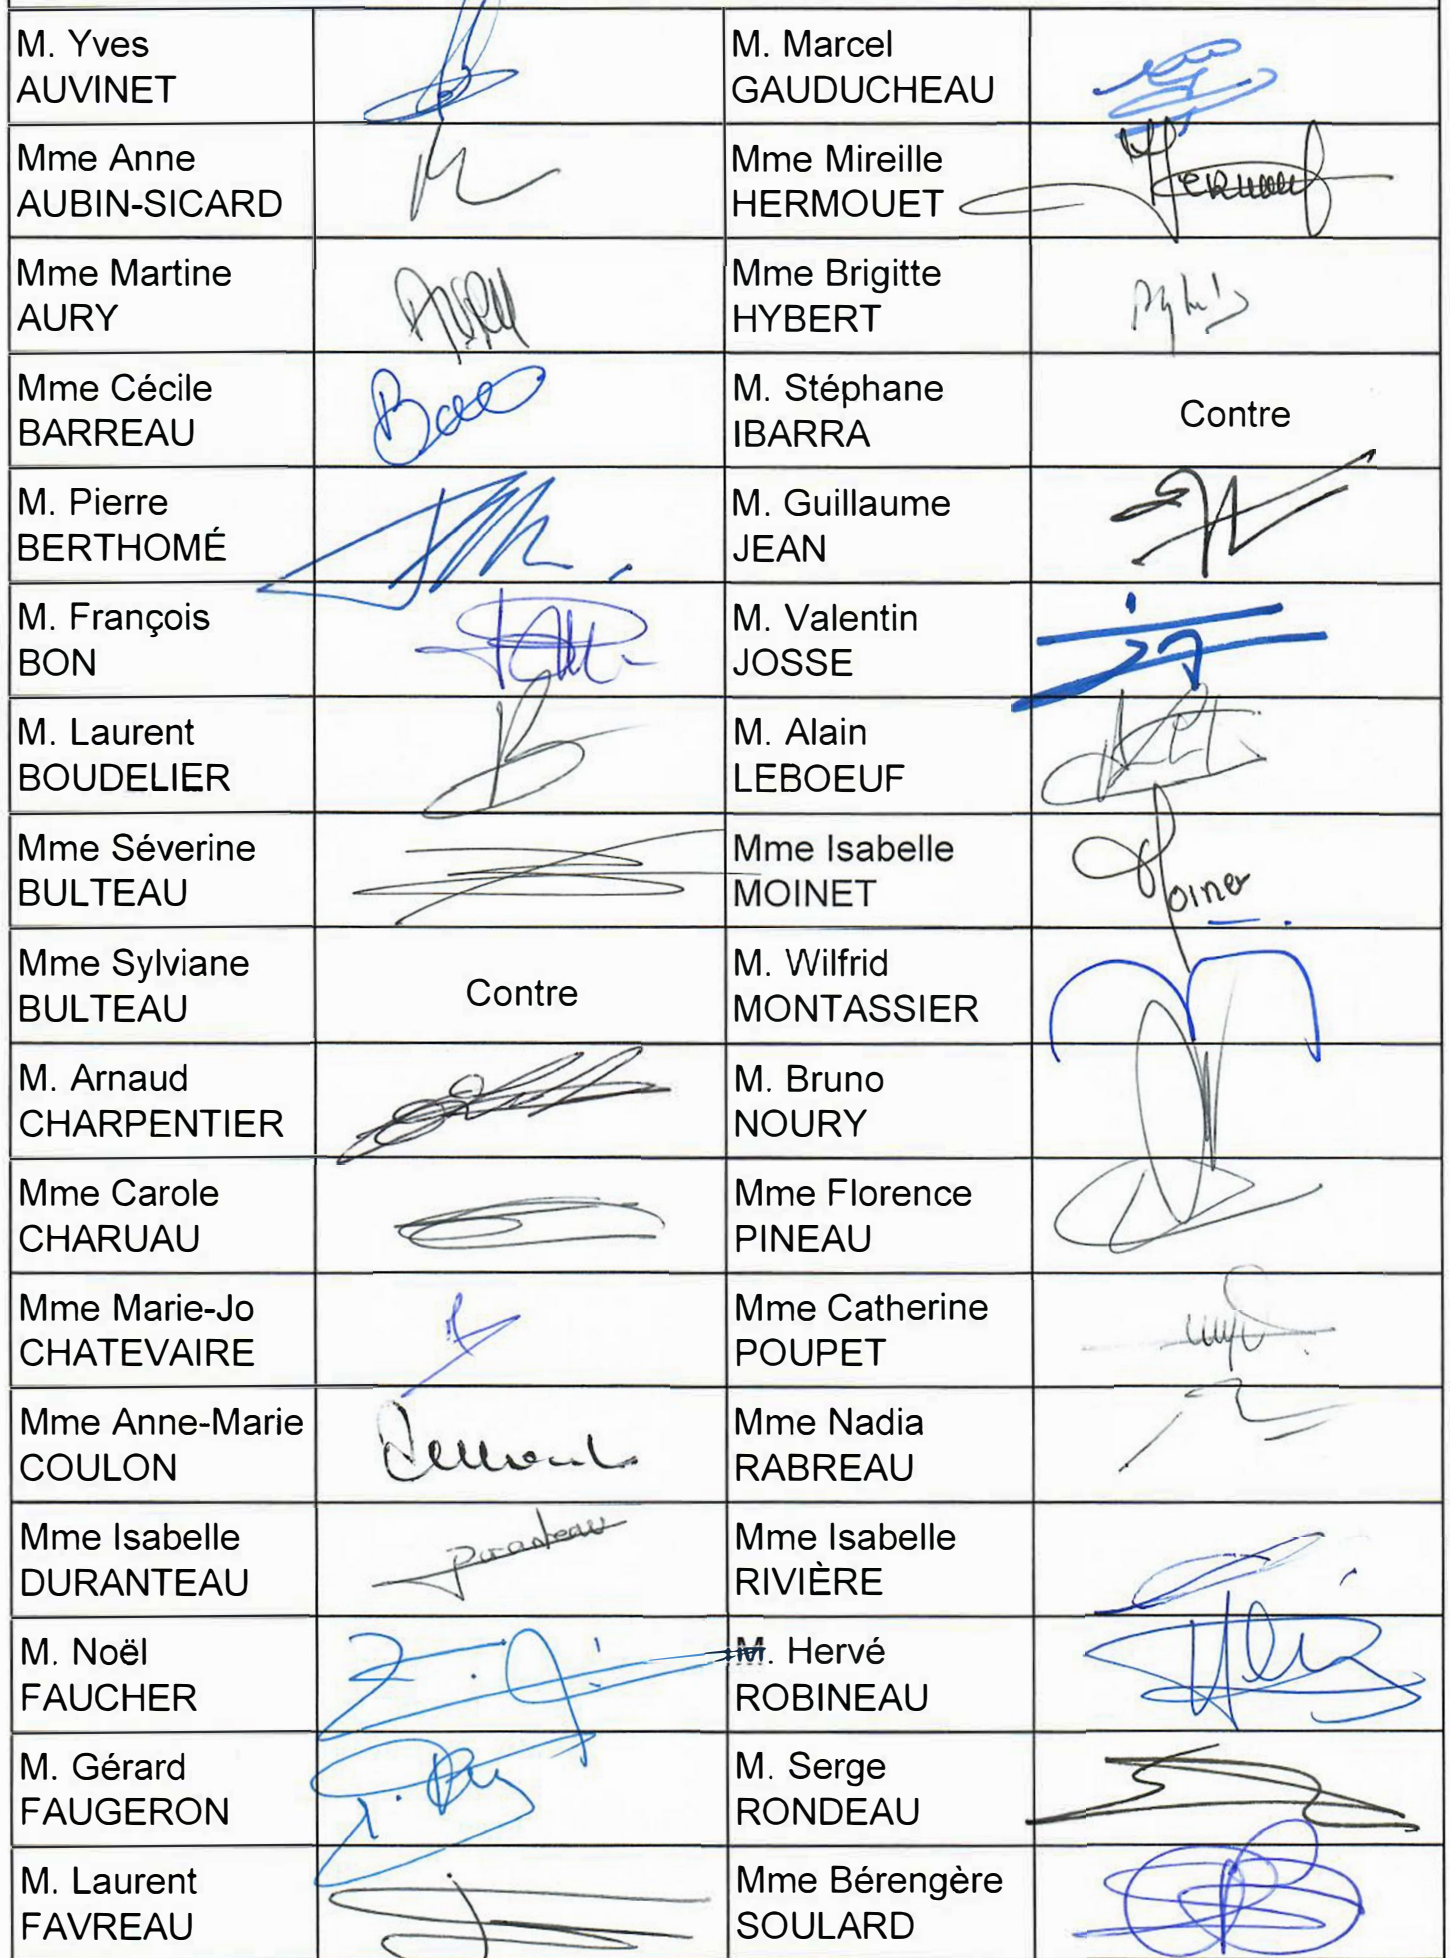 M. Yves
AUVINET
M. Marcel
GAUDUCHEAU
Mme Anne
AUBIN-SICARD
Mme Mireille
HERMOUET
Mme Martine
AURY
Mme Brigitte
HYBERT
Mme Cécile
BARREAU
M. Stéphane
IBARRA
Contre
M. Pierre
BERTHOMÉ
M. Guillaume
JEAN
M. François
BON
M. Valentin
JOSSE
M. Laurent
BOUDELIER
M. Alain
LEBOEUF
Mme Séverine
BULTEAU
Mme Isabelle
MOINET
Mme Sylviane
BULTEAU
Contre
M. Wilfrid
MONTASSIER
M. Arnaud
CHARPENTIER
M. Bruno
NOURY
Mme Carole
CHARUAU
Mme Florence
PINEAU
Mme Marie-Jo
CHATEVAIRE
Mme Catherine
POUPET
Mme Anne-Marie
COULON
Mme Nadia
RABREAU
Mme Isabelle
DURANTEAU
Mme Isabelle
RIVIÈRE
M. Noël
FAUCHER
M. Hervé
ROBINEAU
M. Gérard
FAUGERON
M. Serge
RONDEAU
M. Laurent
FAVREAU
Mme Bérengère
SOULARD